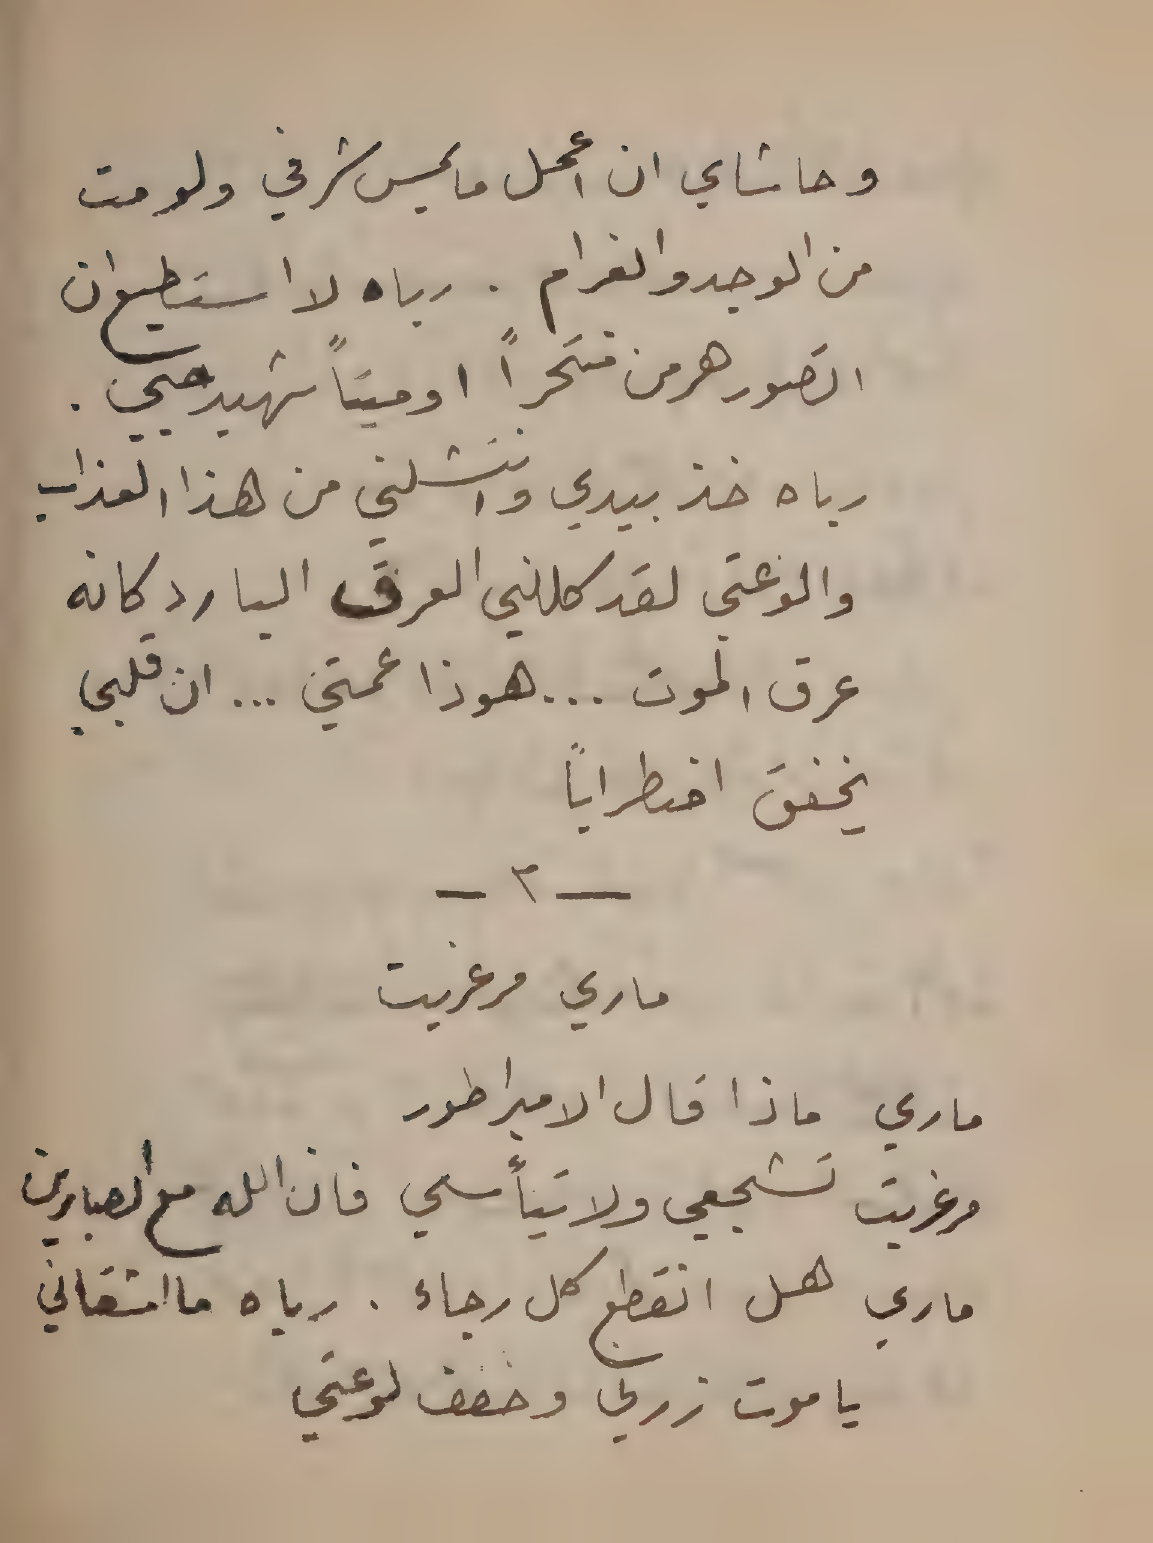 وحاشاي ان اعمل ما يمس شرفي ولو مت
من الوجد والغرام . رباه لا استطيع ان
اتصور هرمن منتحراً او ميتاً شهيد حبي .
رباه خذ بيدي وانتشلني من هذا العذاب
والوعتي لقد كللني العرق البارد كانه
عرق الموت ... هوذا عمتي ... ان قلبي
يخفق اضطراباً
— ٣ —
ماري مرغريت
ماري ماذا قال الامبراطور
مرغريت تشجعي ولا تيأسي فان الله مع الصابرين
ماري هل انقطع كل رجاء . رباه ما اشقاني
يا موت زرني وخفف لوعتي